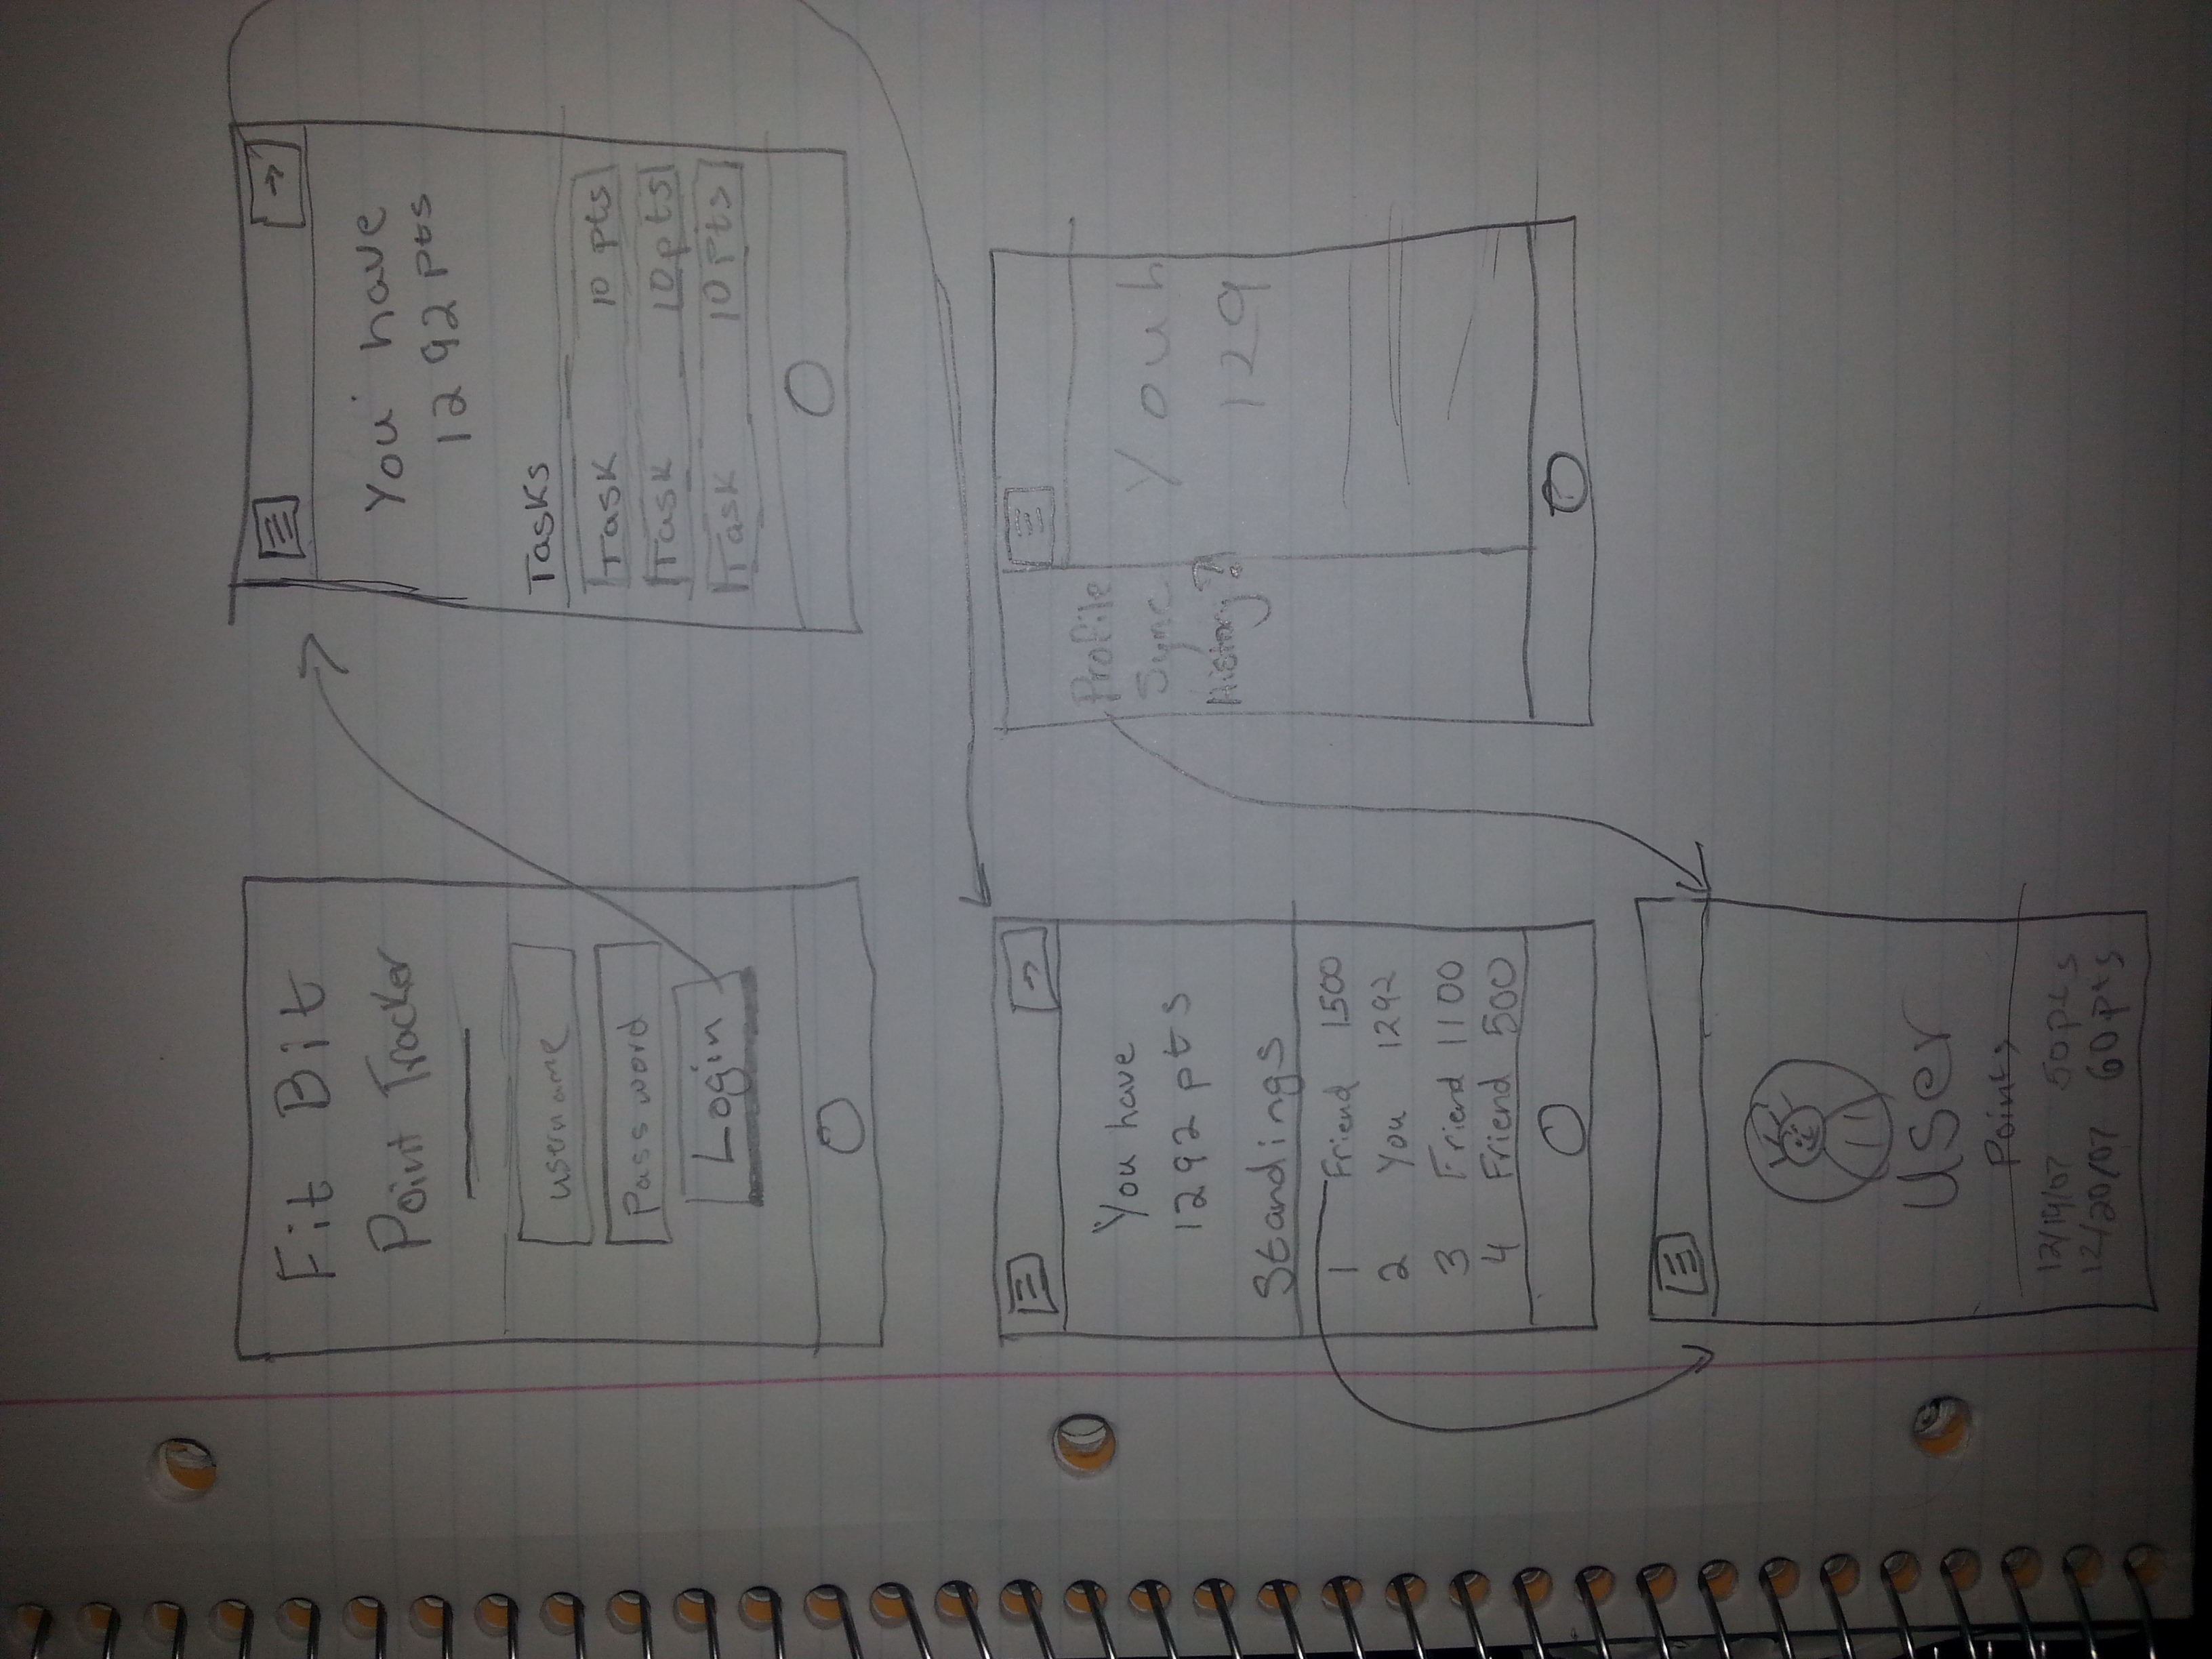 Fit Bit
Point Tracker
username
Password
Login
You have
1292 pts
Tasks
Task 10 pts
Task 10 pts
Task 10 pts
You have
1292 pts
Standings
1 Friend 1500
2 You 1292
3 Friend 1100
4 Friend 500
Profile
Sync
History?
You h
129
User
Points
12/19/07 50 pts
12/20/07 60 pts